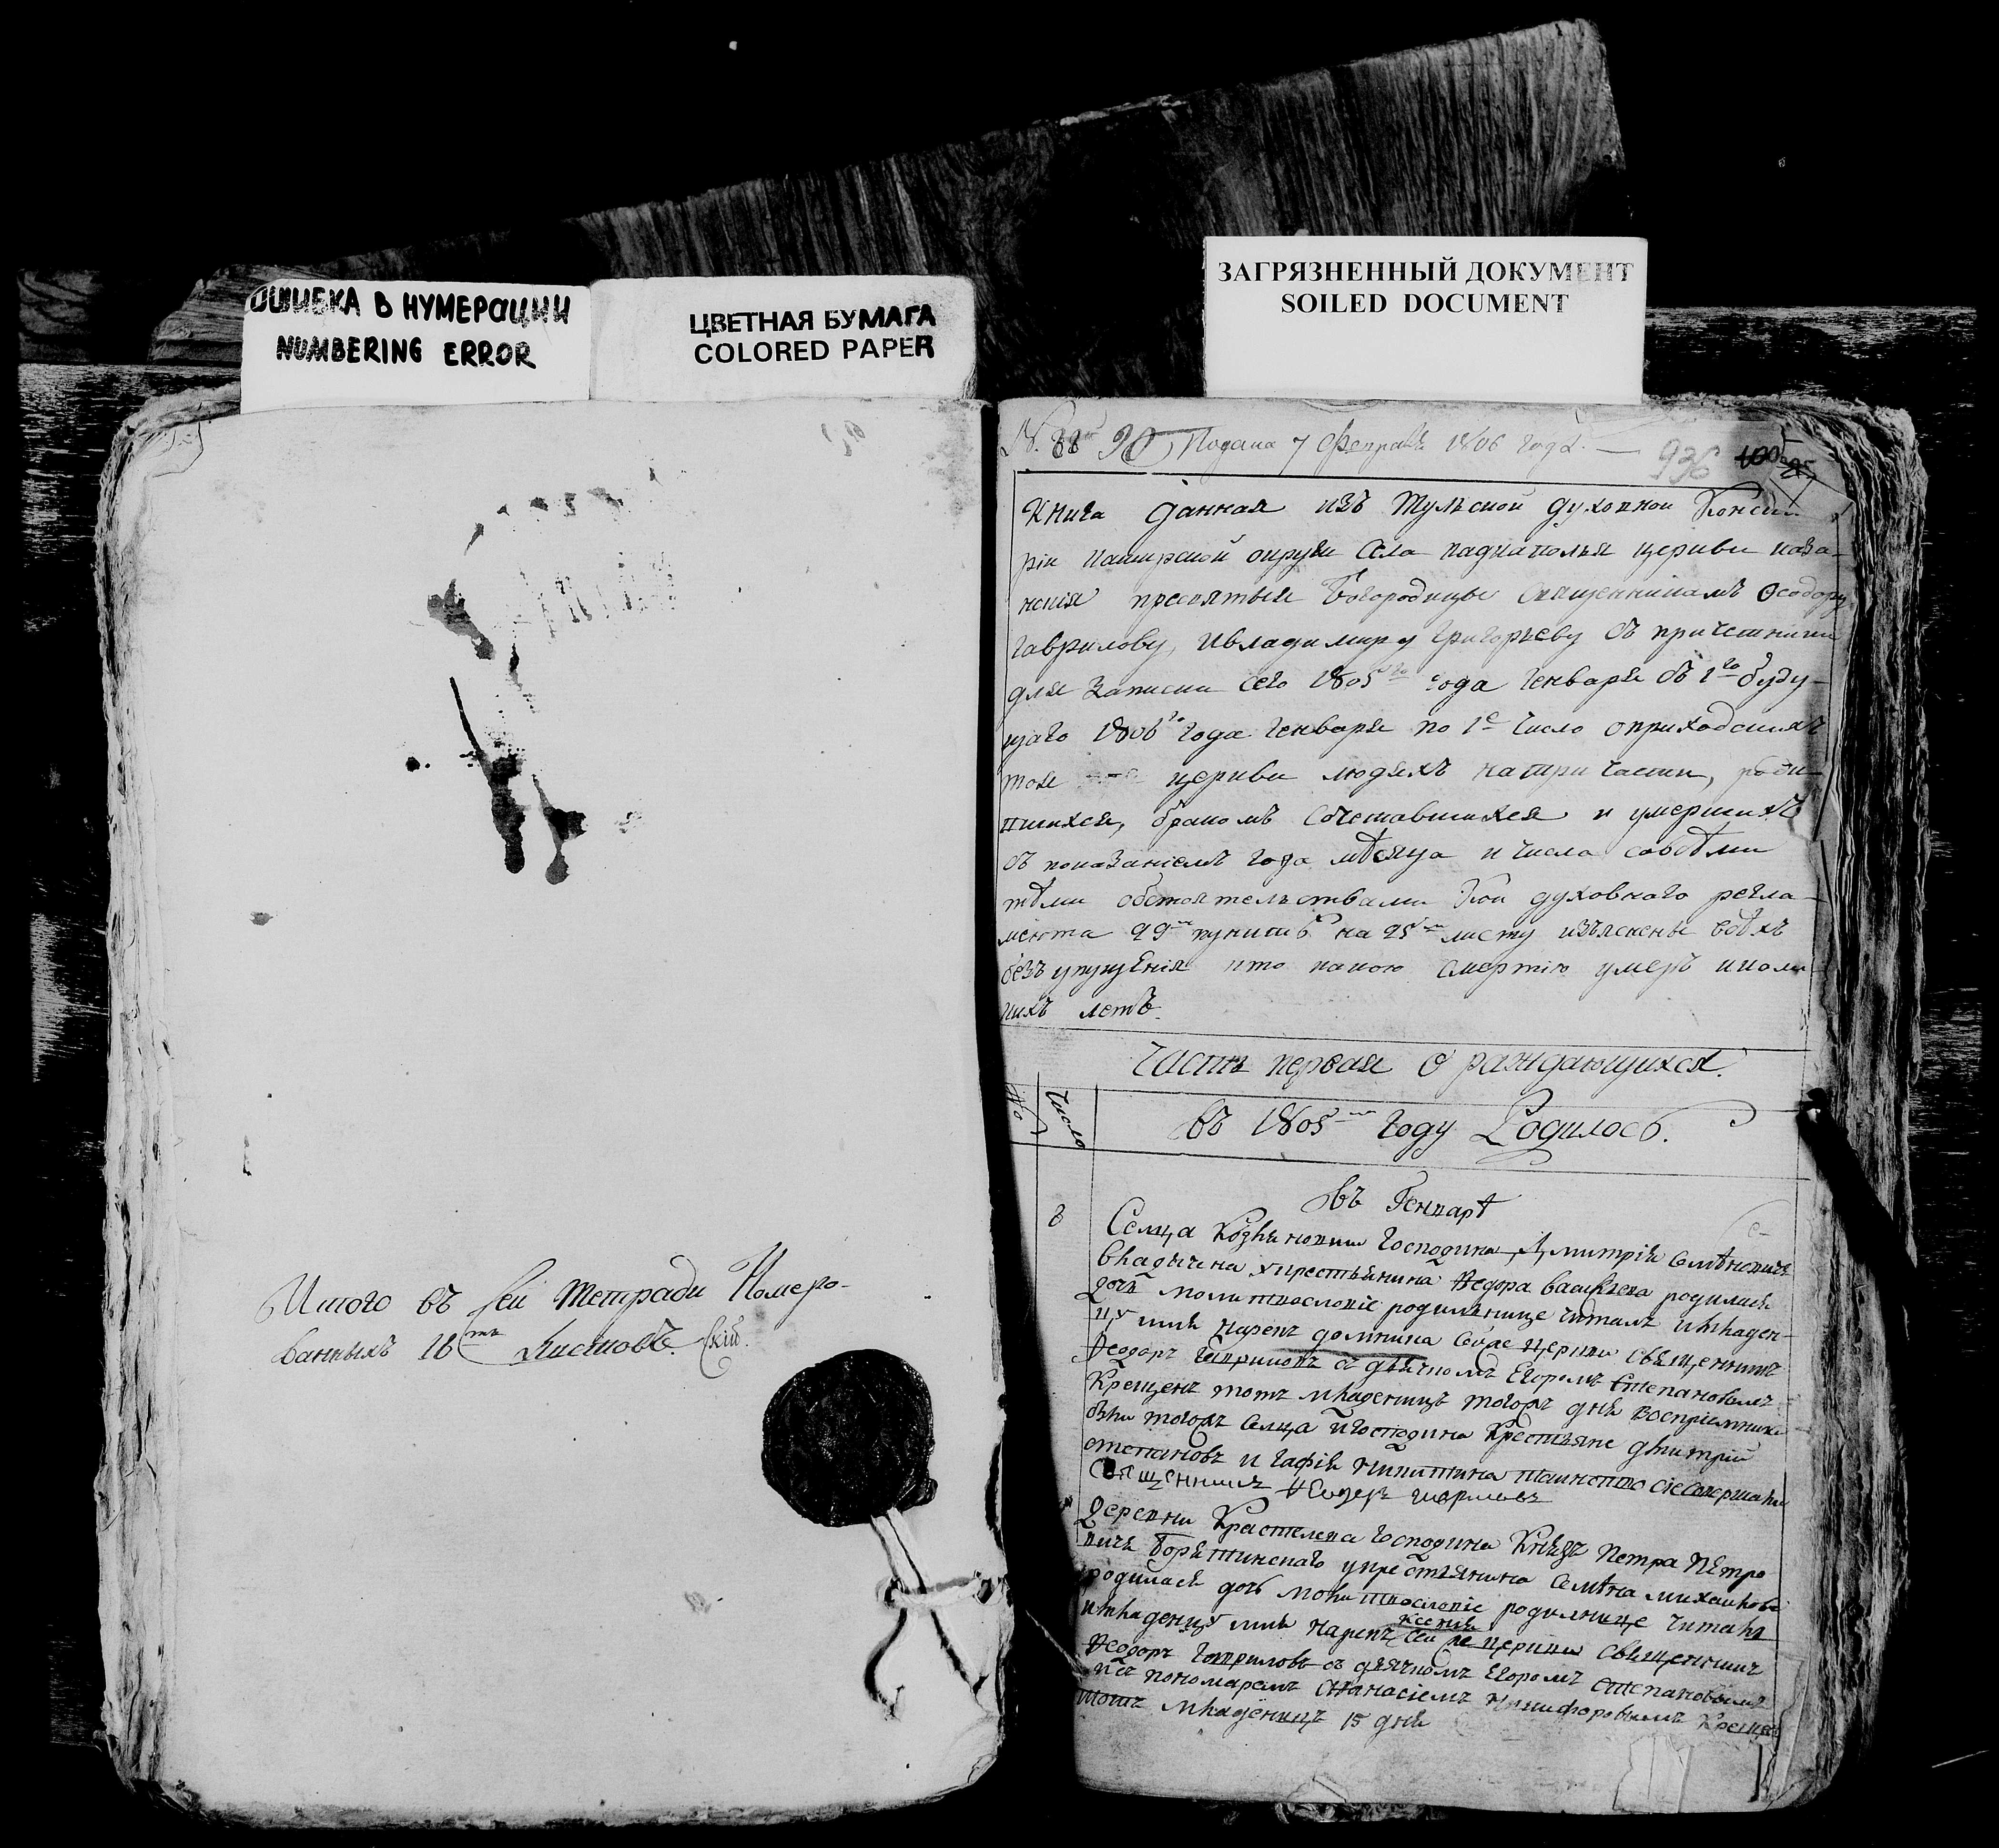 ОШИБКА В НУМЕРАЦИИ
NUMBERING ERROR
ЦВЕТНАЯ БУМАГА
COLORED PAPER
ЗАГРЯЗНЕННЫЙ ДОКУМЕНТ
SOILED DOCUMENT
Итого въ сей тетради Номеро-
ванныхъ 16 листовъ.
90 Подана 7 Февраля 1806 года.
936
Книга данная изъ Тульской духовной Конси
ріи Каширской округи села церкви каза-
нскія пресвятыя Богородицы священникамъ Феодору
Гаврилову, и владимиру Григорьеву съ причетники
для записки сего 1805го года Генваря съ 1го буду-
щаго 1806го года Генваря по 1е число о приходскихъ
тоя церкви людяхъ на три части, роди
вшихся, бракомъ сочетавшихся и умершихъ
съ показаніемъ года мѣсяца и числа со всѣми
тѣми обстоятельствами кои духовнаго регла-
мента 29 пункта на 25 листу изъяснены всѣхъ
безъ упущенія кто какою смертію умеръ и коли
кихъ летъ.
Часть первая о раждающихся.
№ Число
Въ 1805 году Родилось.
Въ Генварѣ
8 Селца господина Дмитрія Семѣновича
крестьянина Федора родилася
дочь молитвословіе родильнице читалъ и младен-
цу имя нареченъ домнина сея церкви священникъ
Феодоръ Гавриловъ съ дьячкомъ Егоромъ Степановымъ
Крещенъ тотъ младенецъ тогожъ дня воспріемники
были тогожъ селца и господина крестьяне дмитрій
степановъ и Никитина таинство сіе совершалъ
Священникъ Феодоръ Гавриловъ
Деревни господина Князь Петра Петро
вича крестьянина Семѣна михаилова
родилася дочь молитвословіе родильнице читалъ
и младенцу имя нареченъ ксенія сей церкви священникъ
Феодоръ Гавриловъ съ дьячкомъ Егоромъ Степановымъ
и съ пономаремъ Афанасіемъ Никифоровымъ Крещенъ
тотъ младенецъ 15 дня